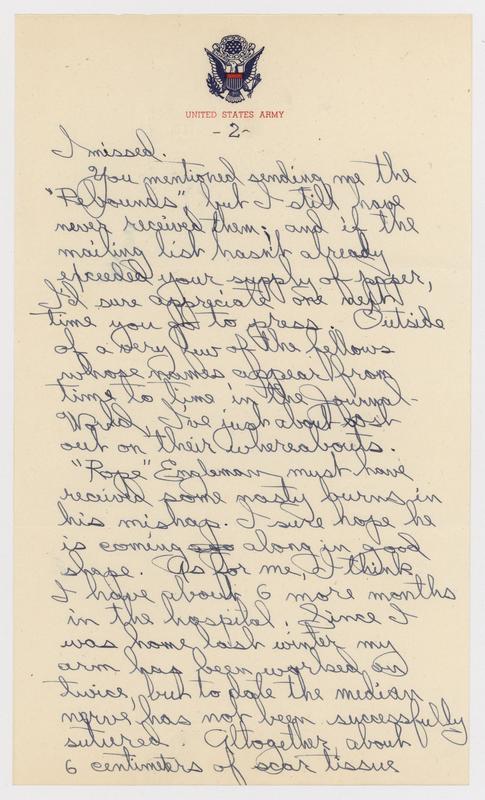 UNITED STATES ARMY
- 2 -
I missed.
You mentioned sending me the
"Rebounds", but I still have
never received them; and if the
mailing list hasn't already
exceeded your supply of paper,
I'd sure appreciate one next
time you go to press. Outside
of a very few of the fellows
whose names appear from
time to time in the Journal-
World, I've just about lost
out on their whereabouts.
"Pope" Engleman must have
received some nasty burns in
his mishap. I sure hope he
is coming along in good
shape. As for me, I think
I have about 6 more months
in the hospital. Since I
was home last winter my
arm has been worked on
twice, but to date the median
nerve has not been successfully
sutured. Altogether, about
6 centimeters of scar tissue